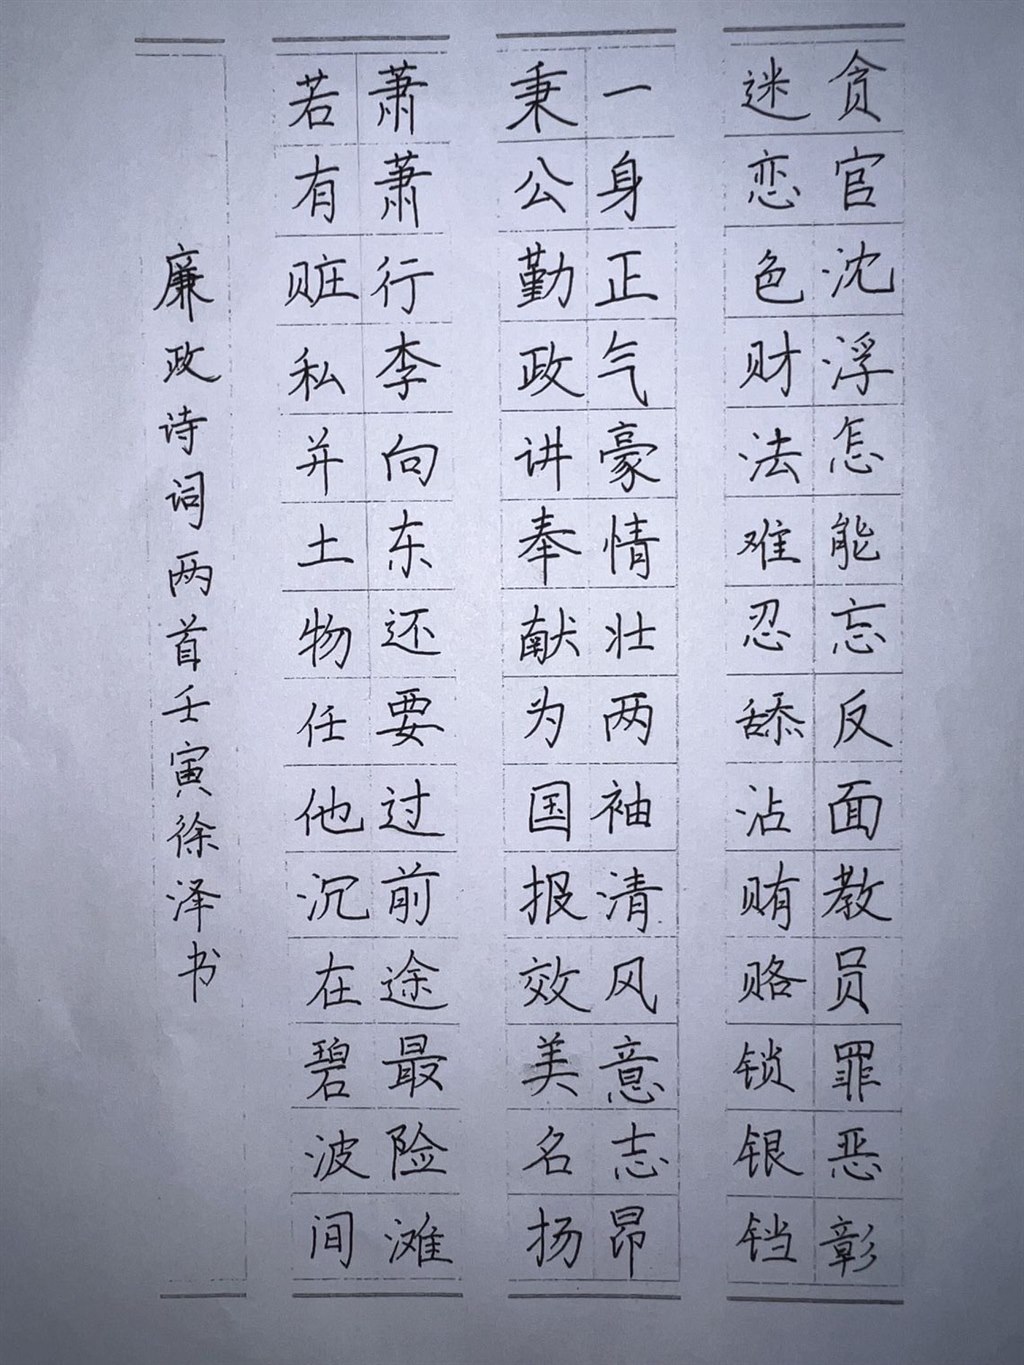 贪官沈浮怎能忘反面教员罪恶彰
迷恋色财法难忍舔沾贿赂锁银铛
一身正气豪情壮两袖清风意志昂
秉公勤政讲奉献为国报效美名扬
萧萧行李向东还要过前途最险滩
若有赃私并土物任他沉在碧波间
廉政诗词两首壬寅徐泽书